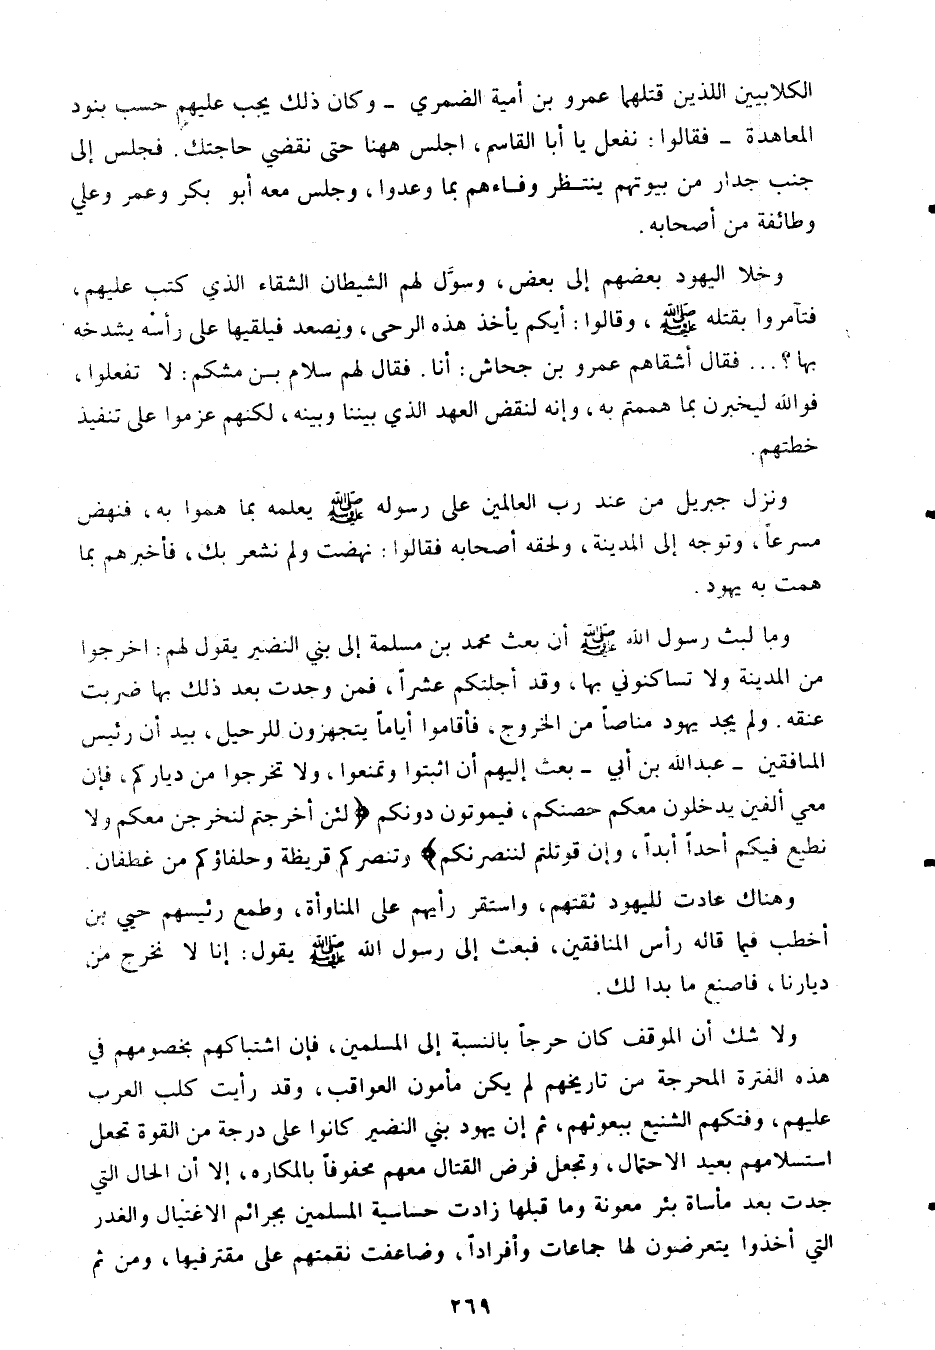 الكلابيين اللذين قتلهما عمرو بن أمية الضمري ــ وكان ذلك يجب عليهم حسب بنود
المعاهدة ــ فقالوا : نفعل يا أبا القاسم ، اجلس ههنا حتى نقضي حاجتك . فجلس إلى
جنب جدار من بيوتهم ينتـظر وفـاءهم بما وعدوا ، وجلس معه أبو بكر وعمر وعلي
وطائفة من أصحابه .
وخلا اليهود بعضهم إلى بعض ، وسوَّل لهم الشيطان الشقاء الذي كتب عليهم ،
فتآمروا بقتله ﷺ ، وقالوا : أيكم يأخذ هذه الرحى ، ويصعد فيلقيها على رأسه يشدخه
بها ؟ ... فقال أشقاهم عمرو بن جحاش : أنا . فقال لهم سلام بـن مشكم : لا تفعلوا ،
فوالله ليخبرن بما هممتم به ، وإنه لنقض العهد الذي بيننا وبينه ، لكنهم عزموا على تنفيذ
خطتهم .
ونزل جبريل من عند رب العالمين على رسوله ﷺ يعلمه بما هموا به ، فنهض
مسرعاً ، وتوجه إلى المدينة ، ولحقه أصحابه فقالوا : نهضت ولم نشعر بك ، فأخبرهم بما
همت به يهود .
وما لبث رسول الله ﷺ أن بعث محمد بن مسلمة إلى بني النضير يقول لهم : اخرجوا
من المدينة ولا تساكنوني بها ، وقد أجلتكم عشراً ، فمن وجدت بعد ذلك بها ضربت
عنقه . ولم يجد يهود مناصاً من الخروج ، فأقاموا أياماً يتجهزون للرحيل ، بيد أن رئيس
المنافقين ــ عبدالله بن أبي ــ بعث إليهم أن اثبتوا وتمنعوا ، ولا تخرجوا من دياركم ، فإن
معي ألفين يدخلون معكم حصنكم ، فيموتون دونكم ﴿ لئن أخرجتم لنخرجن معكم ولا
نطيع فيكم أحداً أبداً ، وإن قوتلتم لننصرنكم ﴾ وتنصركم قريظة وحلفاؤكم من غطفان .
وهناك عادت لليهود ثقتهم ، واستقر رأيهم على المناوأة ، وطمع رئيسهم حيي بن
أخطب فيما قاله رأس المنافقين ، فبعث إلى رسول الله ﷺ يقول : إنا لا نخرج من
ديارنا ، فاصنع ما بدا لك .
ولا شك أن الموقف كان حرجاً بالنسبة إلى المسلمين ، فإن اشتباكهم بخصومهم في
هذه الفترة المحرجة من تاريخهم لم يكن مأمون العواقب ، وقد رأيت كلب العرب
عليهم ، وفتكهم الشنيع ببعوثهم ، ثم إن يهود بني النضير كانوا على درجة من القوة تجعل
استسلامهم بعيد الاحتمال ، وتجعل فرض القتال معهم محفوفاً بالمكاره ، إلا أن الحال التي
جدت بعد مأساة بئر معونة وما قبلها زادت حساسية المسلمين بجرائم الاغتيال والغدر
التي أخذوا يتعرضون لها جماعات وأفراداً ، وضاعفت نقمتهم على مقترفيها ، ومن ثم
٢٦٩